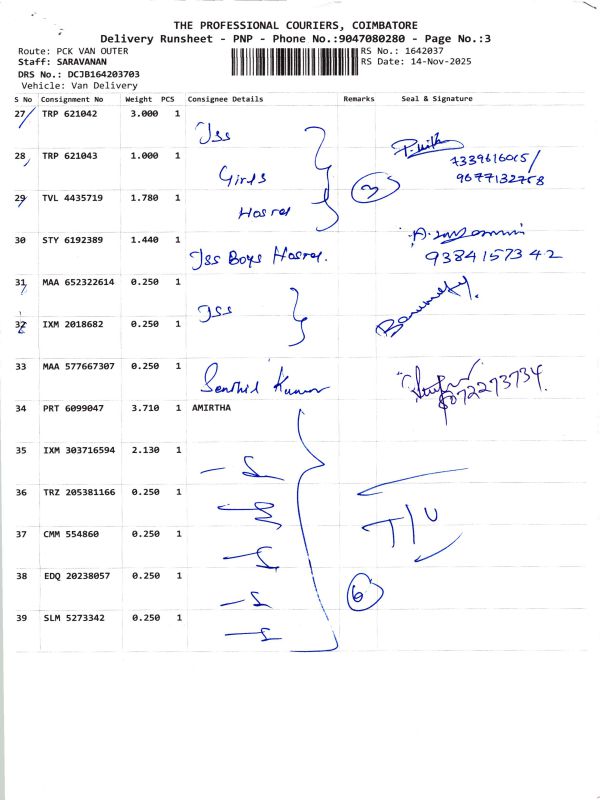 THE PROFESSIONAL COURIERS, COIMBATORE
Delivery Runsheet - PNP - Phone No.:9047080280 - Page No.:3
Route: PCK VAN OUTER
RS No.: 1642037
Staff: SARAVANAN
RS Date: 14-Nov-2025
DRS No.: DCJB164203703
Vehicle: Van Delivery
S No Consignment No Weight PCS Consignee Details Remarks Seal & Signature
27 TRP 621042 3.000 1 Jss
28 TRP 621043 1.000 1 Girls 7339616015/
9677132758
29 TVL 4435719 1.780 1 Hostel 3
30 STY 6192389 1.440 1 Jss Boys Hostel. 9384157342
31 MAA 652322614 0.250 1 Jss
32 IXM 2018682 0.250 1
33 MAA 577667307 0.250 1 Senthil Kumar 8072273734
34 PRT 6099047 3.710 1 AMIRTHA
35 IXM 303716594 2.130 1
36 TRZ 205381166 0.250 1 T/U
37 CMM 554860 0.250 1
38 EDQ 20238057 0.250 1 6
39 SLM 5273342 0.250 1